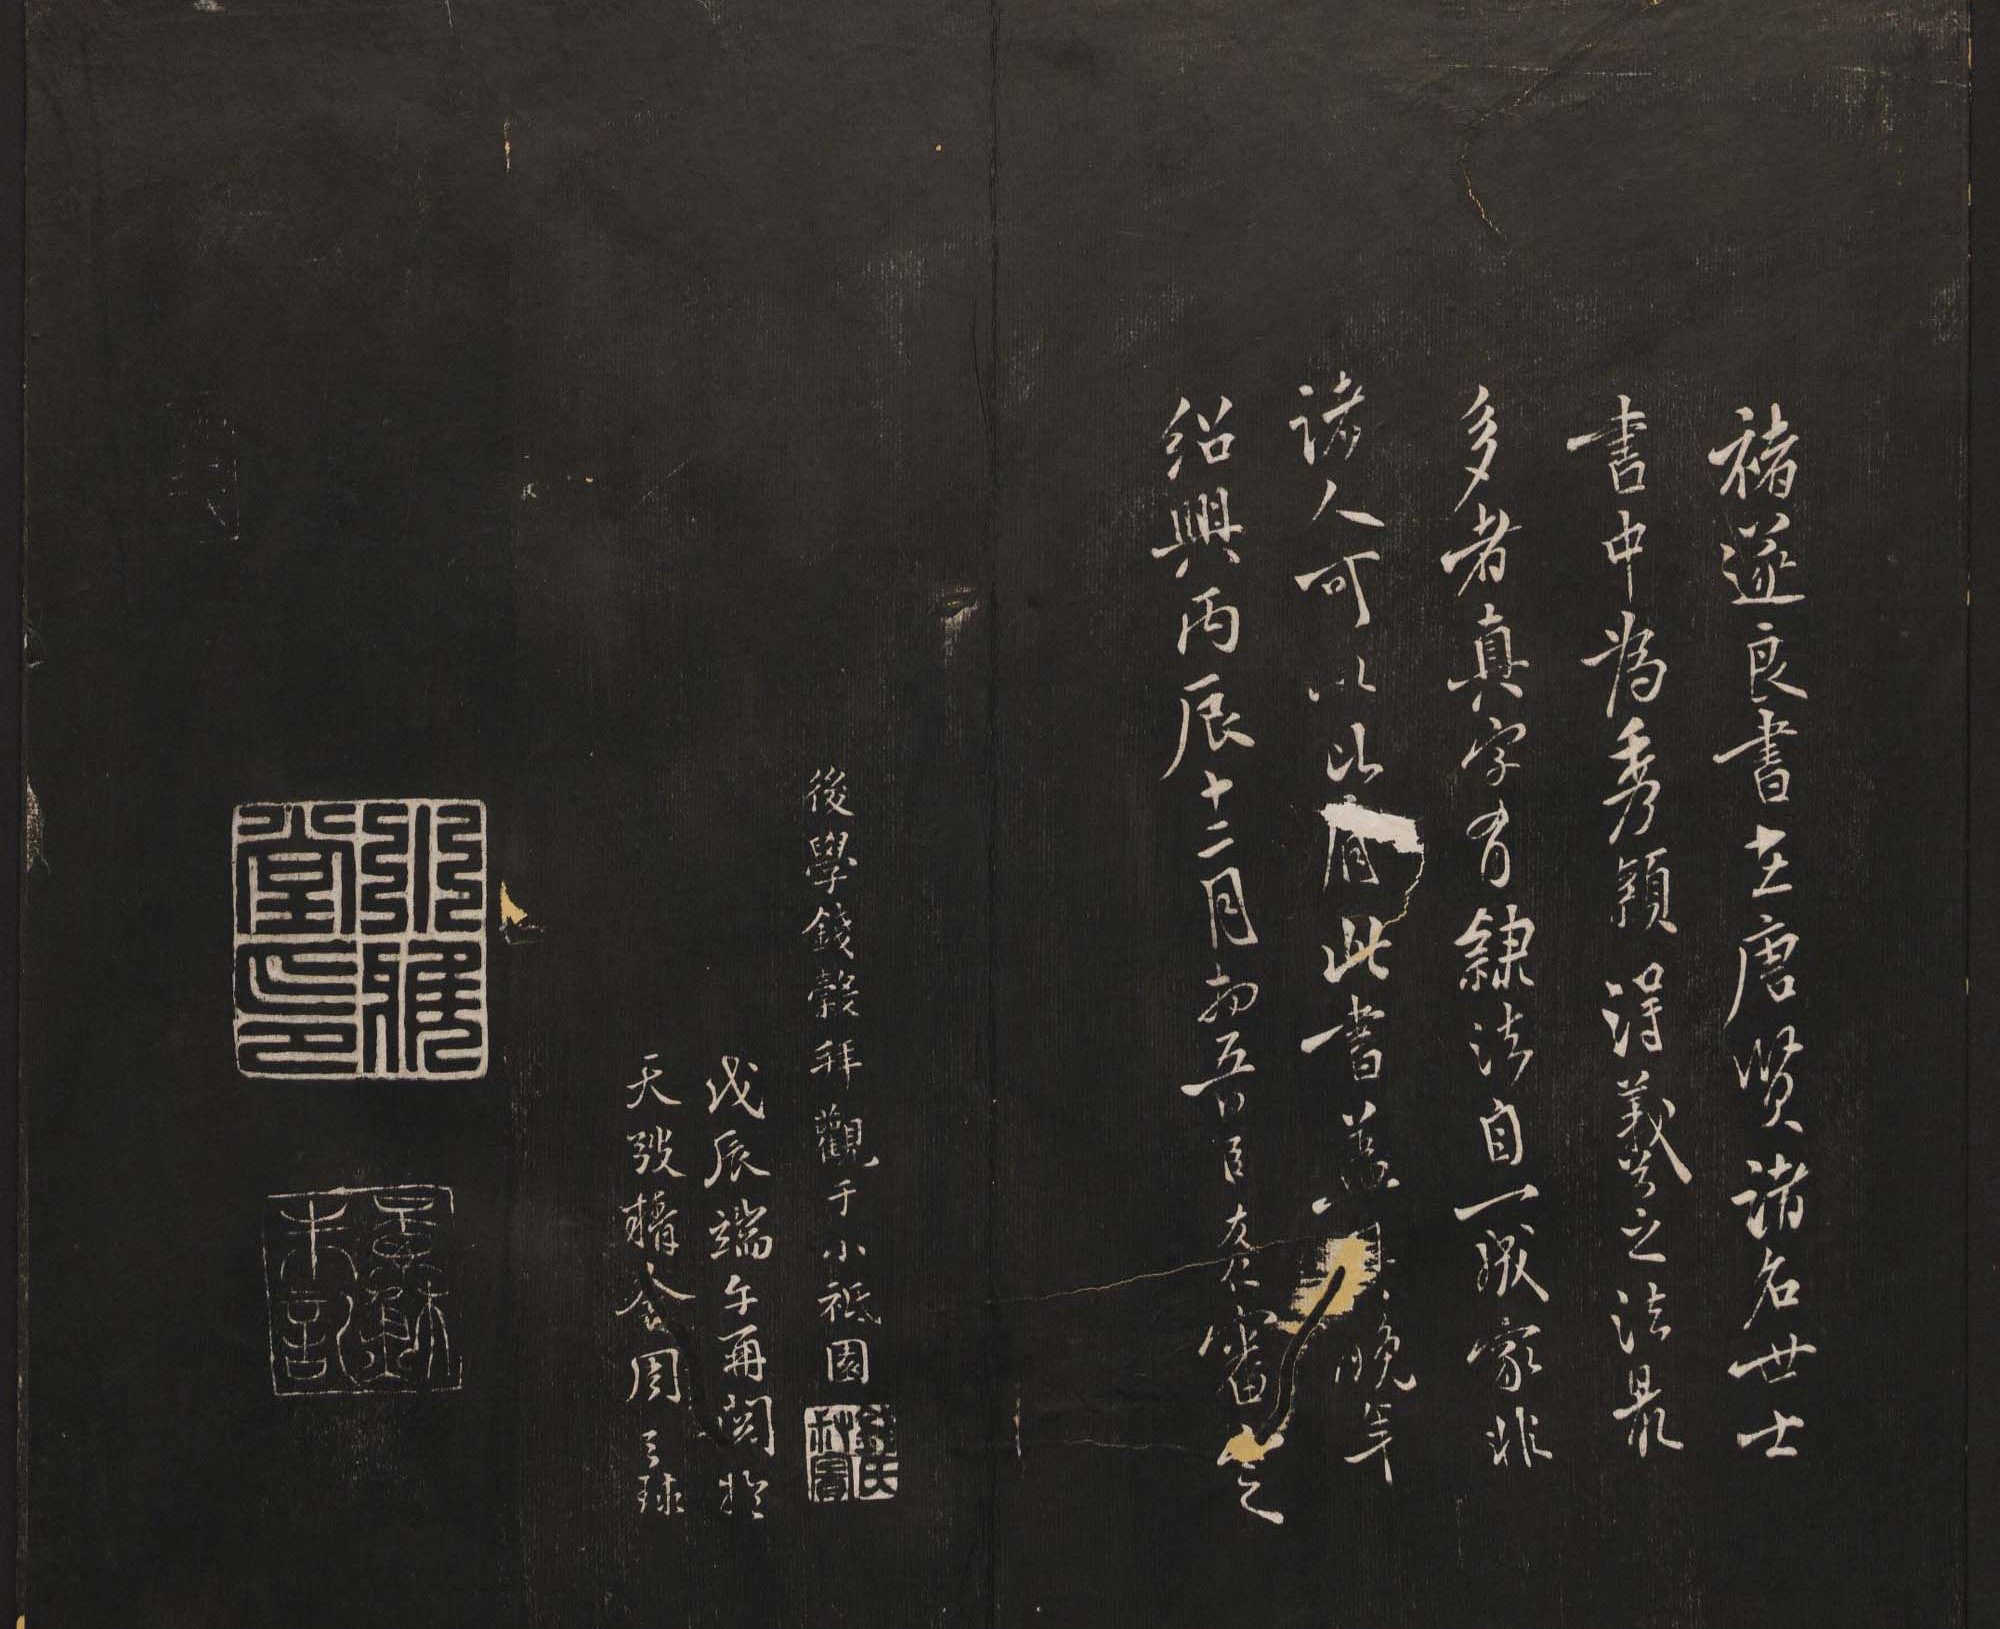 褚遂良書在唐賢諸名世士
書中為秀穎得羲之之法最
多者真字有隸法自一成家非
諸人可以比肩此書蓋其晚年
紹興丙辰十二月初吉臣友仁審定
後學錢穀拜觀于小祇園
戊辰端午再閱於
天弢精舍周天球